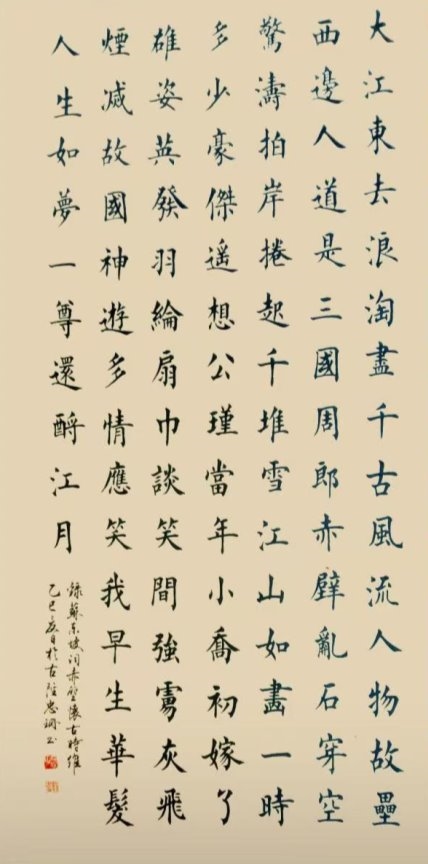 大江東去浪淘盡千古風流人物故壘
西邊人道是三國周郎赤壁亂石穿空
驚濤拍岸捲起千堆雪江山如畫一時
多少豪傑遥想公瑾當年小喬初嫁了
雄姿英發羽綸扇巾談笑間強虜灰飛
煙减故國神遊多情應笑我早生華髮
人生如夢一尊還酹江月
錄蘇东坡词赤壁懷古時維
乙巳夏日於古